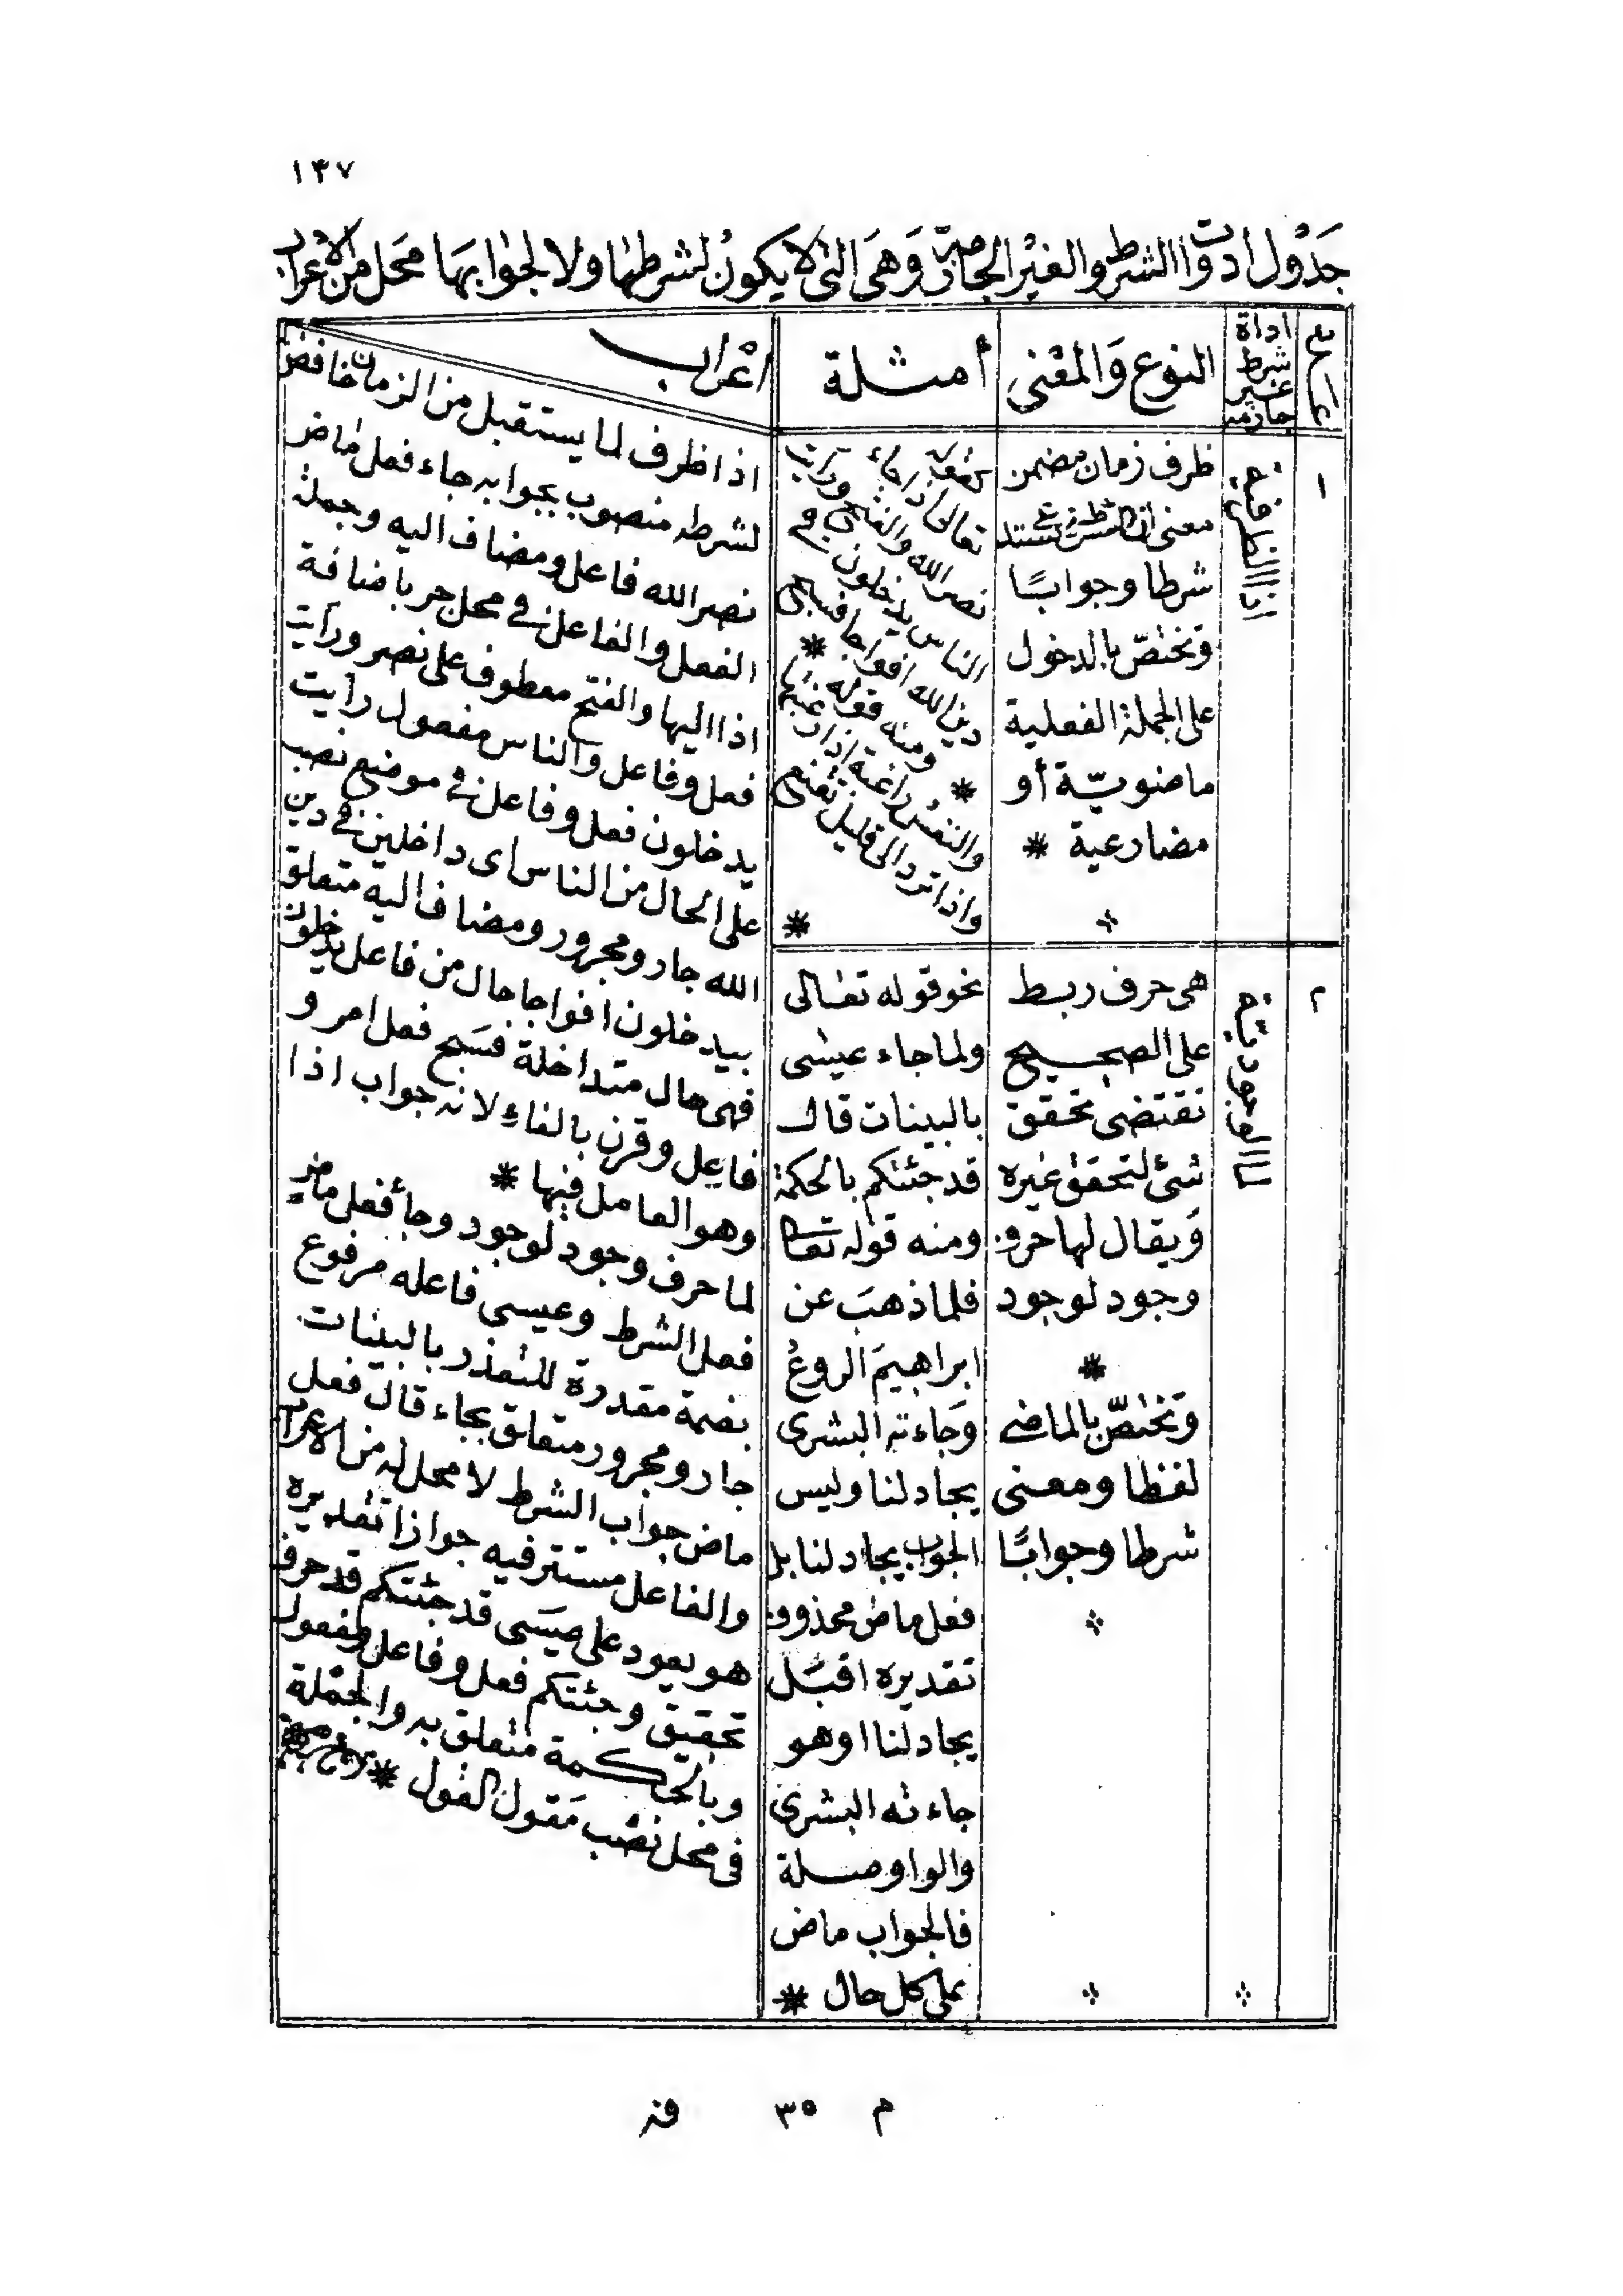 ١٣٧
جَدْول ادوات الشرط والغيْر الجازمة وَهىَ التى لا يكونُ لشرطها ولا لجوابهَا مَحَل من الاعراب
عدد
اداة
شرط
غير
جازمة
النوع وَالمعْنى
أمثلة
اعْراب
١
اذا الظرفية
ظرف زمان مضمن
معنى
شرطا وجوابًا
وتختصّ بالدخول
على الجملة الفعلية
ماضويّة أو
مضارعية *
نحو قوله
تعالى اذا جاء
نصر الله والفتح ورايت
الناس يدخلون فى
دين الله افواجا فسبح *
ومنه قوله
* والنفسُ راغبة اذا رغبتها
واذا ترد الى قليل تقنع
*
اذا ظرف لما يستقبل من الزمان خافض
لشرطه منصوب بجوابه جاء فعل ماض
نصر الله فاعل ومضاف اليه وجملة
الفعل والفاعل فى محل جر باضافة
اذا اليها والفتح معطوف على نصر ورايت
فعل وفاعل والناس مفعول رايت
يدخلون فعل وفاعل فى موضع نصب
على الحال من الناس اى داخلين فى دين
الله جار ومجرور ومضاف اليه متعلق
بيدخلون افواجا حال من فاعل يدخلون
فهى حال متداخلة فسَبح فعل امر و
فاعل وقرن بالفاءِ لانه جواب اذا
وهو العامل فيها *
٢
لما الوجودية
هى حرف ربط
على الصحيح
تقتضى تحقق
شئ لتحقق غيره
وَيقال لها حرف
وجود لوجود
*
وتختصّ بالماضى
لفظا ومعنى
شرطا وجوابًا
نحو قوله تعالى
ولما جاء عيسى
بالبينات قال
قد جئتكم بالحكمة
ومنه قوله تعالى
فلما ذهبَ عن
ابراهيمَ الروعُ
وَجاءته البشرى
يجادلنا وليس
الجواب يجادلنا بل
فعل ماض محذوف
تقديره اقبَل
يجادلنا اوهو
جاءته البشرى
والواو صلة
فالجواب ماض
على كل حال *
لما حرف وجود لوجود وجأ فعل ماض
فعل الشرط وعيسى فاعله مرفوع
بضمة مقدرة للتعذر بالبينات
جار ومجرور متعلق بجاء قال فعل
ماض جواب الشرط لا محل له من الاعراب
والفاعل مستتر فيه جوازا تقديره
هو يعود على عيسَى قد جئتكم قد حرف
تحقيق وجئتكم فعل وفاعل ومفعول
وبالحكمة متعلق به والجمْلة
فى محل نصْب مَقول القول *
م ٣٥ فز